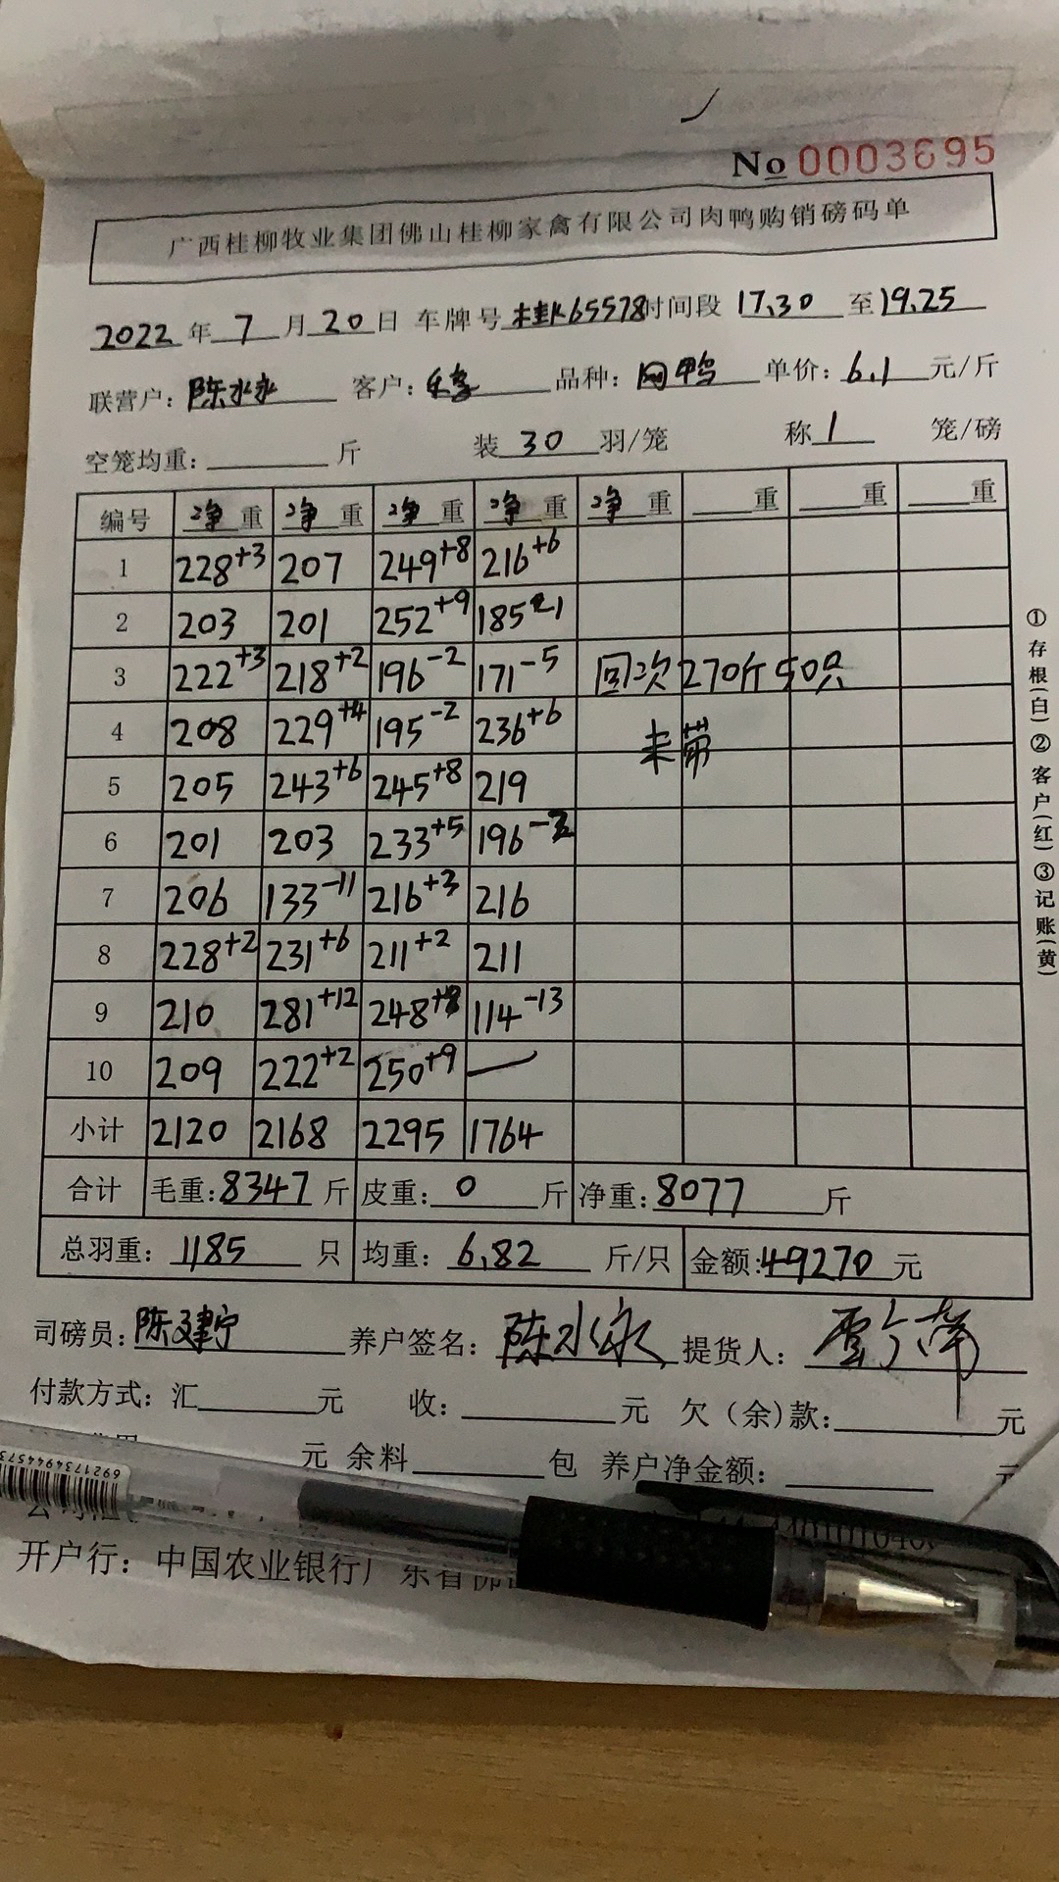 No 0003695
广西桂柳牧业集团佛山桂柳家禽有限公司肉鸭购销磅码单
2022年7月20日 车牌号桂K65578时间段17.30至19.25
联营户：陈水永 客户： 品种：网鸭 单价：6.1元/斤
空笼均重：斤 装30羽/笼 称1笼/磅
编号 净重 净重 净重 净重 净重 重 重 重
1 228+3 207 249+8 216+6
2 203 201 252+9 185-1
3 222+3 218+2 196-2 171-5 回次270斤50只
4 208 229+4 195-2 236+6 未带
5 205 243+6 245+8 219
6 201 203 233+5 196-2
7 206 133-11 216+3 216
8 228+2 231+6 211+2 211
9 210 281+12 248+8 114-13
10 209 222+2 250+9 —
小计 2120 2168 2295 1764
合计 毛重：8347斤 皮重：0斤 净重：8077斤
总羽重：1185只 均重：6.82斤/只 金额：49270元
司磅员：陈建宁 养户签名：陈水永 提货人：
付款方式：汇元 收：元 欠（余）款：元
元 余料包 养户净金额：元
开户行：中国农业银行广东省佛
①存根(白)②客户(红)③记账(黄)
6921734944573